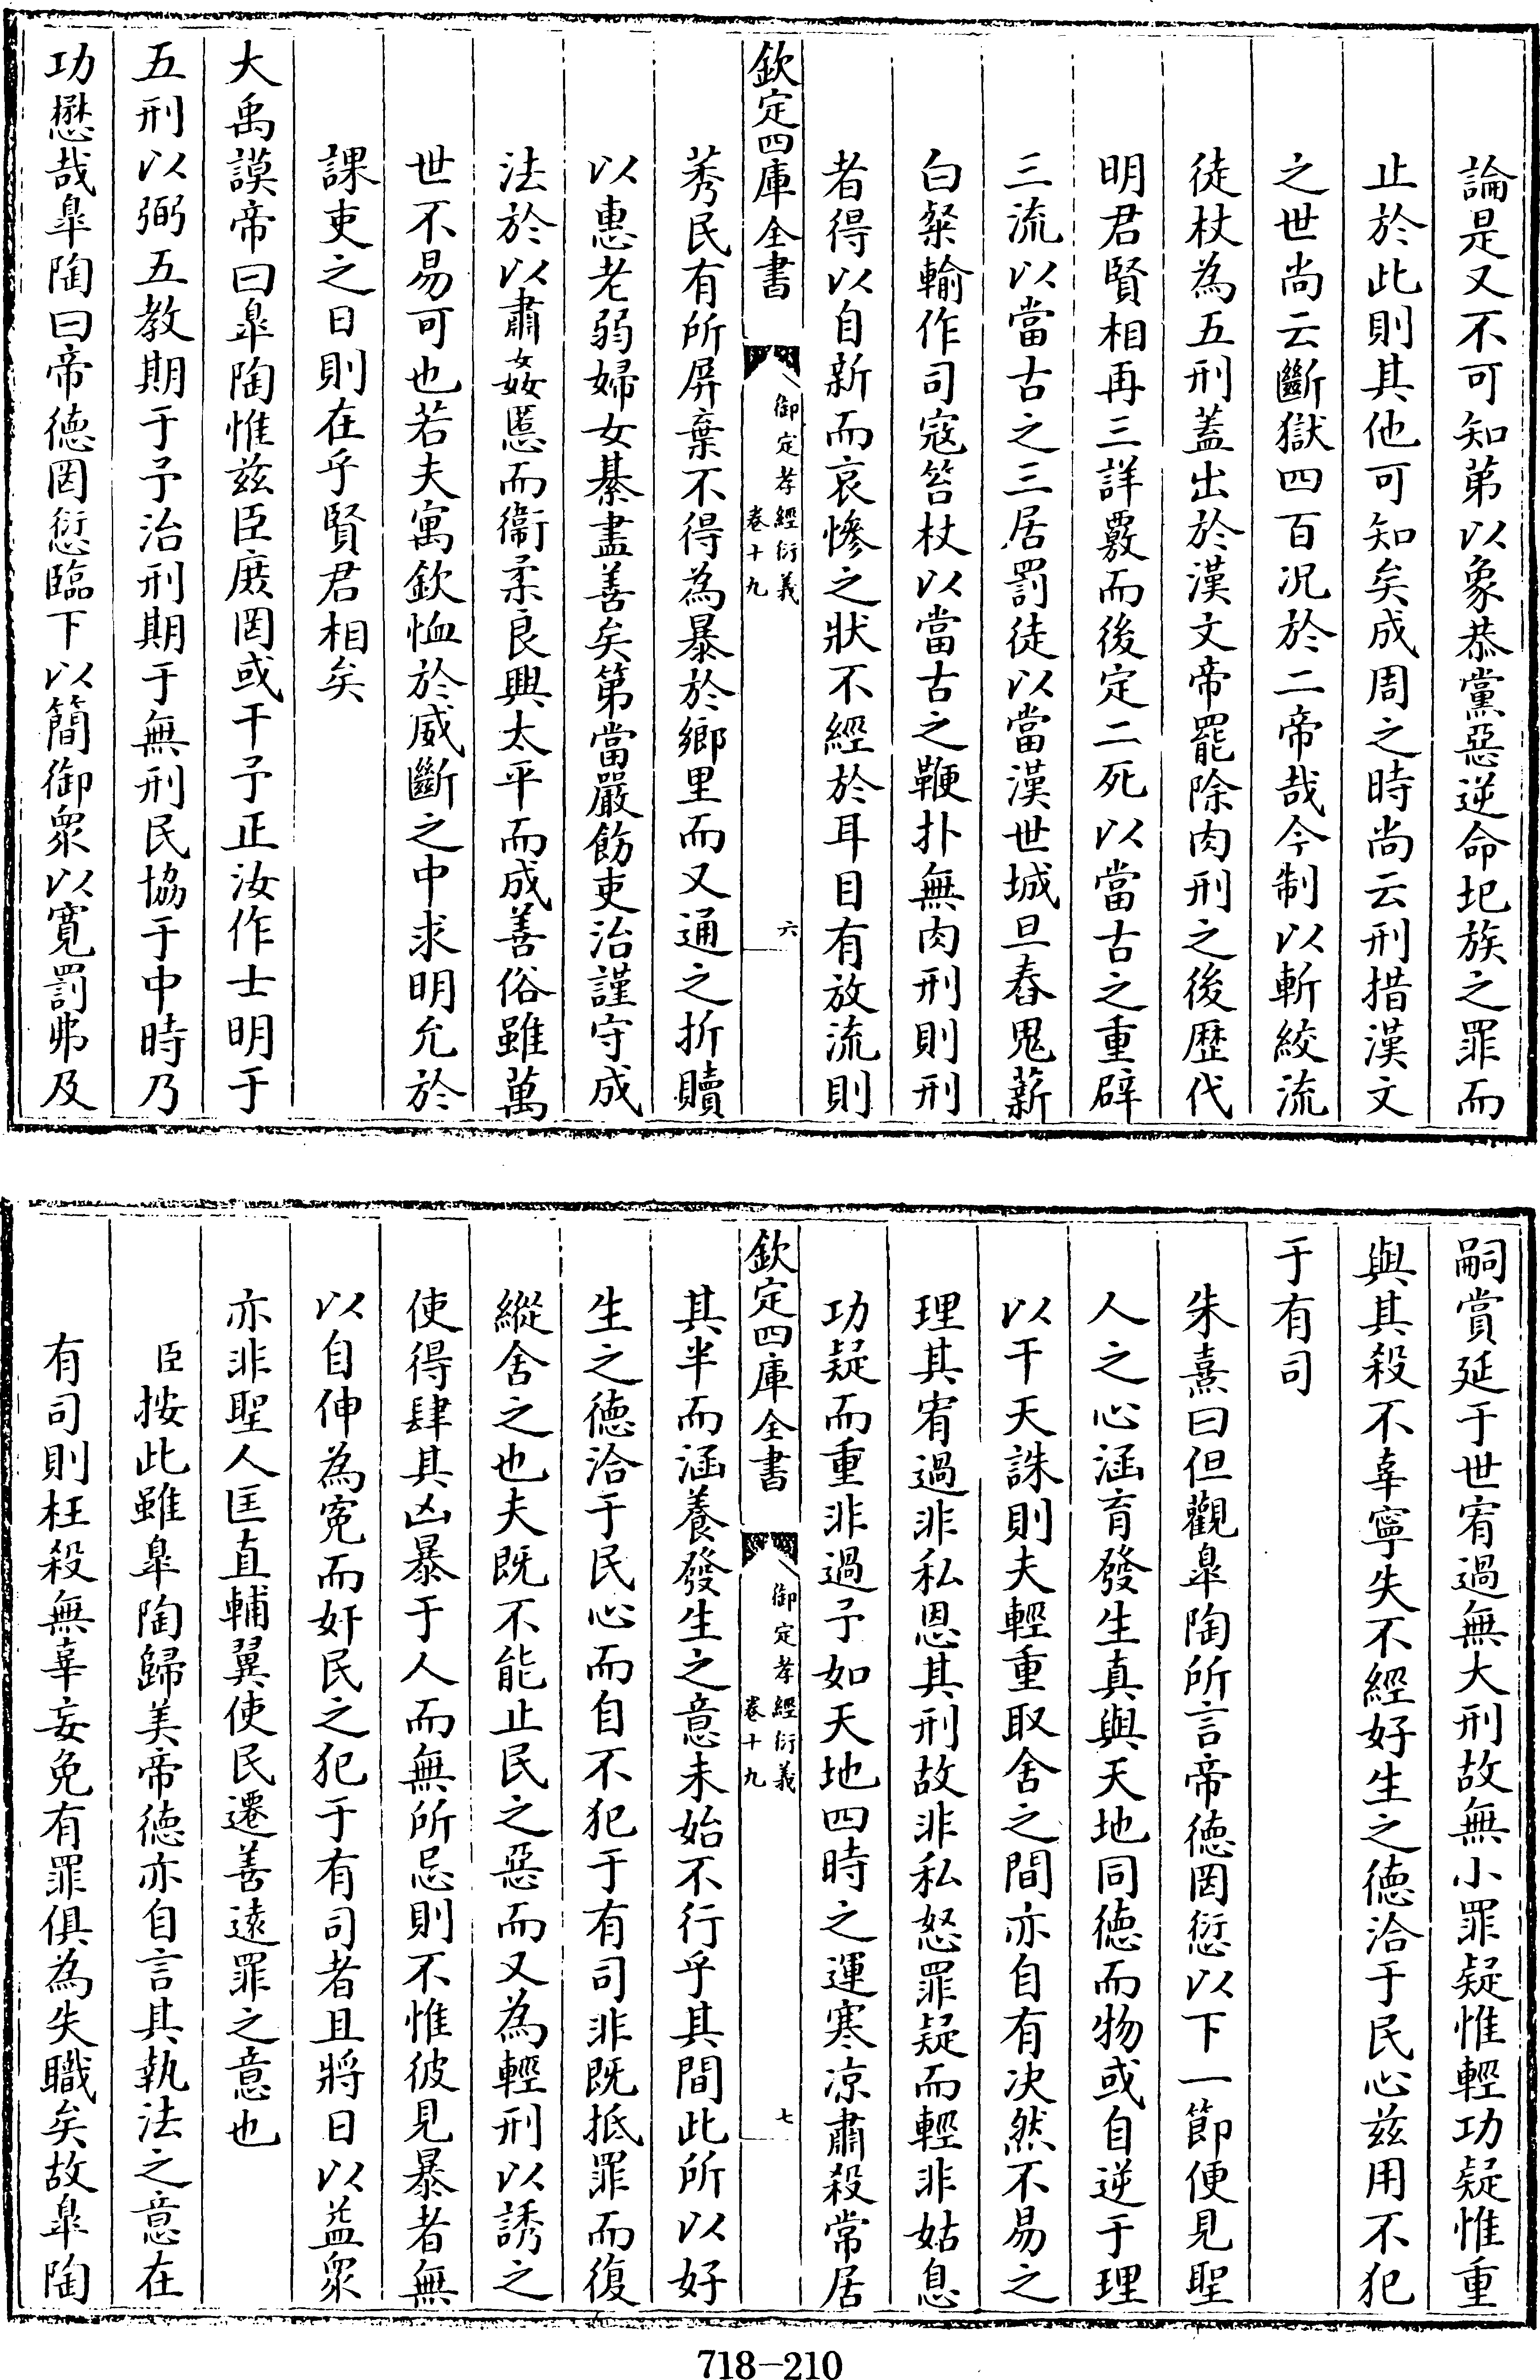 論是又不可知第以象恭黨惡逆命圯族之罪而
止於此則其他可知矣成周之時尚云刑措漢文
之世尚云斷獄四百况於二帝哉今制以斬絞流
徒杖為五刑蓋出於漢文帝罷除肉刑之後歷代
明君賢相再三詳覈而後定二死以當古之重辟
三流以當古之三居罰徒以當漢世城旦舂鬼薪
白粲輸作司寇笞杖以當古之鞭扑無肉刑則刑
者得以自新而哀慘之狀不經於耳目有放流則
欽定四庫全書
御定孝經衍義
卷十九
六
莠民有所屏棄不得為暴於鄉里而又通之折贖
以惠老弱婦女綦盡善矣第當嚴飭吏治謹守成
法於以肅姦慝而衞柔良興太平而成善俗雖萬
世不易可也若夫寓欽恤於威斷之中求明允於
課吏之日則在乎賢君相矣
大禹謨帝曰臯陶惟兹臣庶罔或干予正汝作士明于
五刑以弼五教期于予治刑期于無刑民協于中時乃
功懋哉臯陶曰帝德罔愆臨下以簡御衆以寛罰弗及
嗣賞延于世宥過無大刑故無小罪疑惟輕功疑惟重
與其殺不辜寧失不經好生之德洽于民心兹用不犯
于有司
朱熹曰但觀臯陶所言帝德罔愆以下一節便見聖
人之心涵育發生真與天地同德而物或自逆于理
以干天誅則夫輕重取舍之間亦自有决然不易之
理其宥過非私恩其刑故非私怒罪疑而輕非姑息
功疑而重非過予如天地四時之運寒凉肅殺常居
欽定四庫全書
御定孝經衍義
卷十九
七
其半而涵養發生之意未始不行乎其間此所以好
生之德洽于民心而自不犯于有司非既抵罪而復
縱舍之也夫既不能止民之惡而又為輕刑以誘之
使得肆其凶暴于人而無所忌則不惟彼見暴者無
以自伸為寃而奸民之犯于有司者且將日以益衆
亦非聖人匡直輔翼使民遷善遠罪之意也
臣按此雖臯陶歸美帝德亦自言其執法之意在
有司則枉殺無辜妄免有罪俱為失職矣故臯陶
718-210